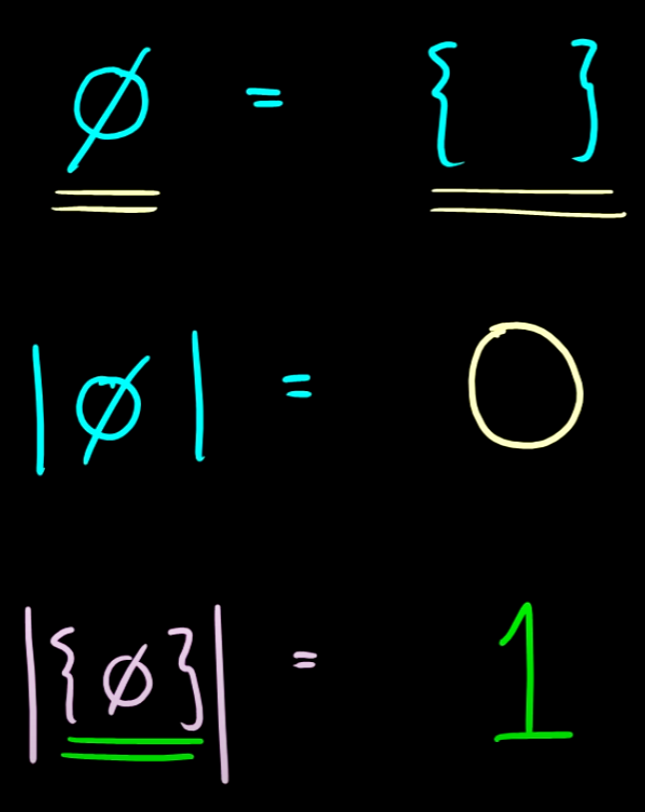 ∅ = { }
|∅| = 0
|{∅}| = 1